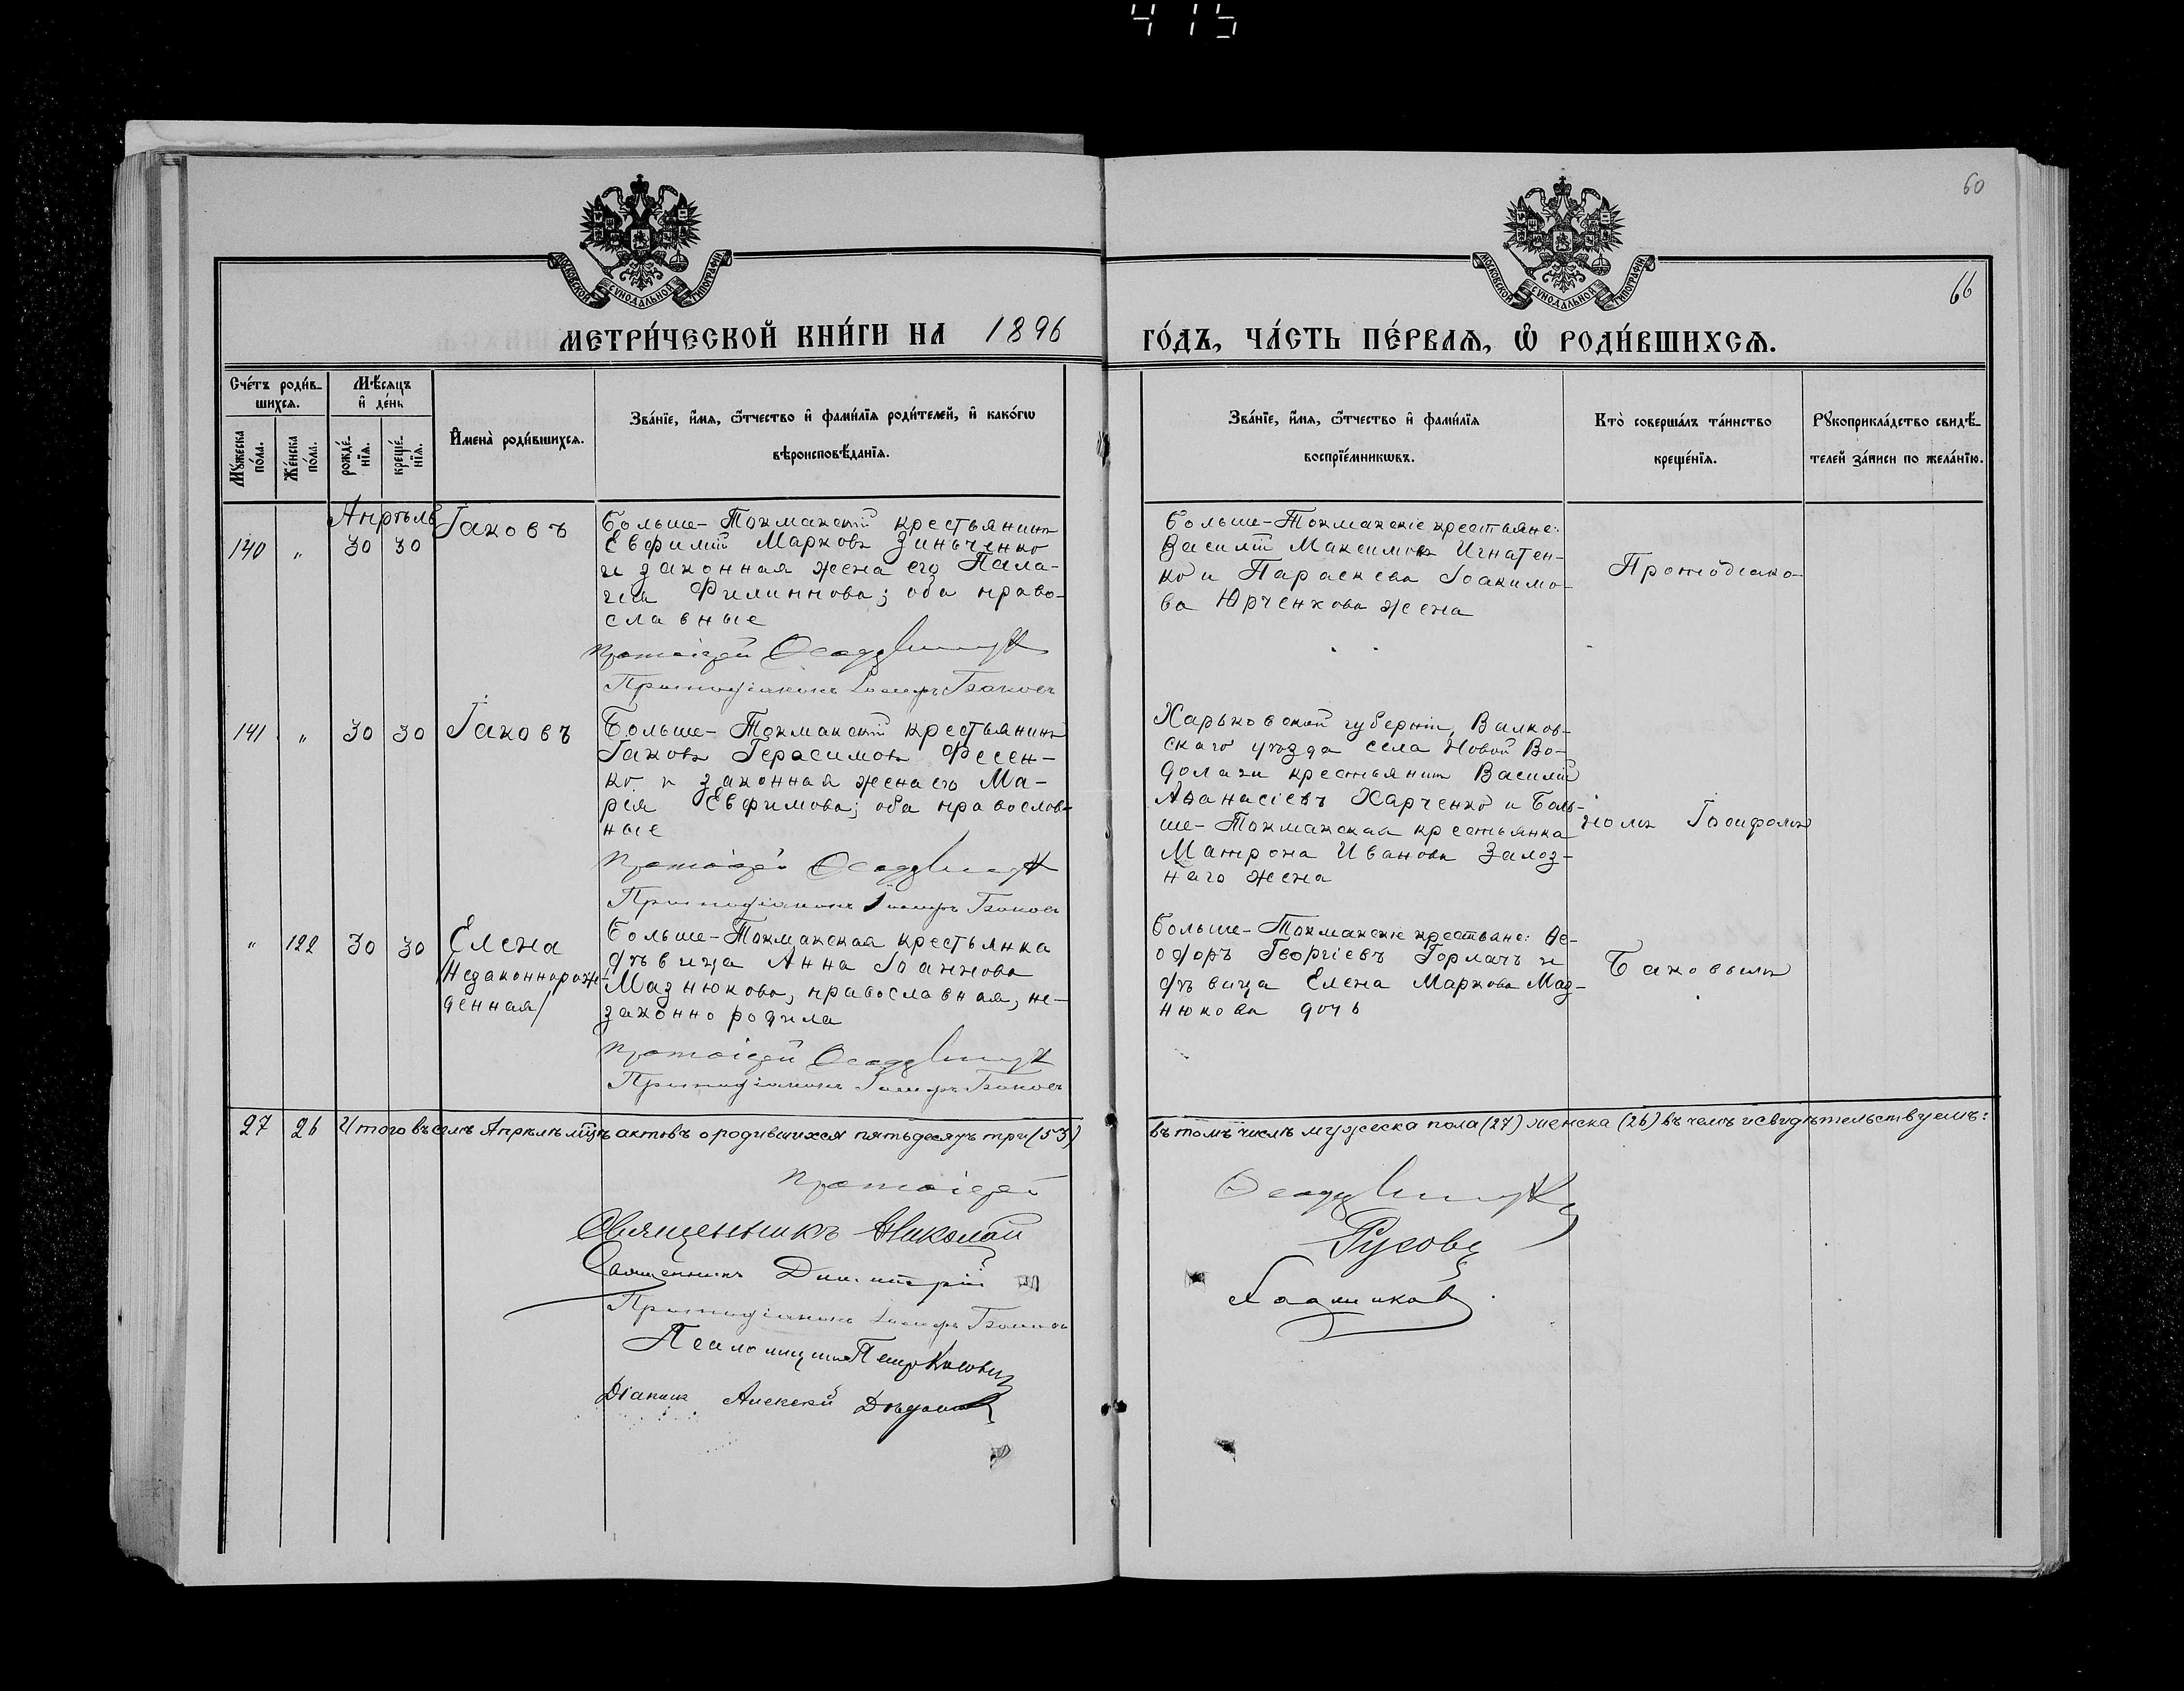 415
60
66
МОСКОВСКОЙ СѴНОДАЛЬНОЙ ТИПОГРАФІИ
МОСКОВСКОЙ СѴНОДАЛЬНОЙ ТИПОГРАФІИ
МЕТРИ́ЧЕСКОЙ КНИ́ГИ НА 1896
ГО́ДЪ, ЧА́СТЬ ПЕ́РВАѦ, Ѡ҆ РОДИ́ВШИХСѦ.
Сче́тъ роди́в-
шихсѧ.
Мꙋ́жеска по́ла.
Же́нска по́ла.
Мѣ́сѧцъ
и҆ де́нь
рожде́-
нїѧ.
креще́-
нїѧ.
И҆мена̀ роди́вшихсѧ.
Зва́нїе, и҆́мѧ, ѻ҆́тчество и҆ фами́лїѧ роди́телей, и҆ како́гѡ
вѣроисповѣ́данїѧ.
Зва́нїе, и҆́мѧ, ѻ҆́тчество и҆ фами́лїѧ
воспрїе́мникѡвъ.
Кто̀ соверша́лъ та́инство
креще́нїѧ.
Рꙋкоприкла́дство свидѣ́-
телей за́писи по жела́нїю.
Апрѣль
140 " 30 30 Іаковъ
Больше-Токмакскій крестьянинъ
Евфимій Марковъ Зинченко
и законная жена его Пела-
гія Филиппова; оба право-
славные
Протоіерей
Протодіаконъ Іосифъ Баковъ
Больше-Токмакскіе крестьяне:
Василій Максимовъ Игнатен-
ко и Параскева Іоакимо-
ва Юрченкова жена
Протодіако-
141 " 30 30 Іаковъ
Больше-Токмакскій крестьянинъ
Іаковъ Герасимовъ Фесен-
ко и законная жена его Ма-
рія Евфимова; оба православ-
ные
Протоіерей
Протодіаконъ Іосифъ Баковъ
Харьковской губерніи, Валков-
скаго уѣзда села Новой Во-
долаги крестьянинъ Василій
Аѳанасіевъ Харченко и Боль-
ше-Токмакская крестьянка
Матрона Иванова Залоз-
наго жена
номъ Іосифомъ
" 122 30 30 Елена
/Незаконнорож-
денная/
Больше-Токмакская крестьянка
дѣвица Анна Іоаннова
Мазнюкова, православная, не-
законно родила
Протоіерей
Протодіаконъ Іосифъ Баковъ
Больше-Токмакскіе крестьяне: Ѳе-
одоръ Георгіевъ Горлачъ и
дѣвица Елена Маркова Маз-
нюкова дочь
Баковымъ
27 26 Итого въ семъ Апрѣлѣ мцѣ актовъ о родившихся пятьдесятъ три (53)
въ томъ числѣ мужеска пола (27) женска (26) въ чемъ и свидѣтельствуемъ:
Протоіерей
Священникъ Николай Русовъ
Священникъ Димитрій
Протодіаконъ Іосифъ Баковъ
Псаломщикъ Петръ
Діаконъ Алексей